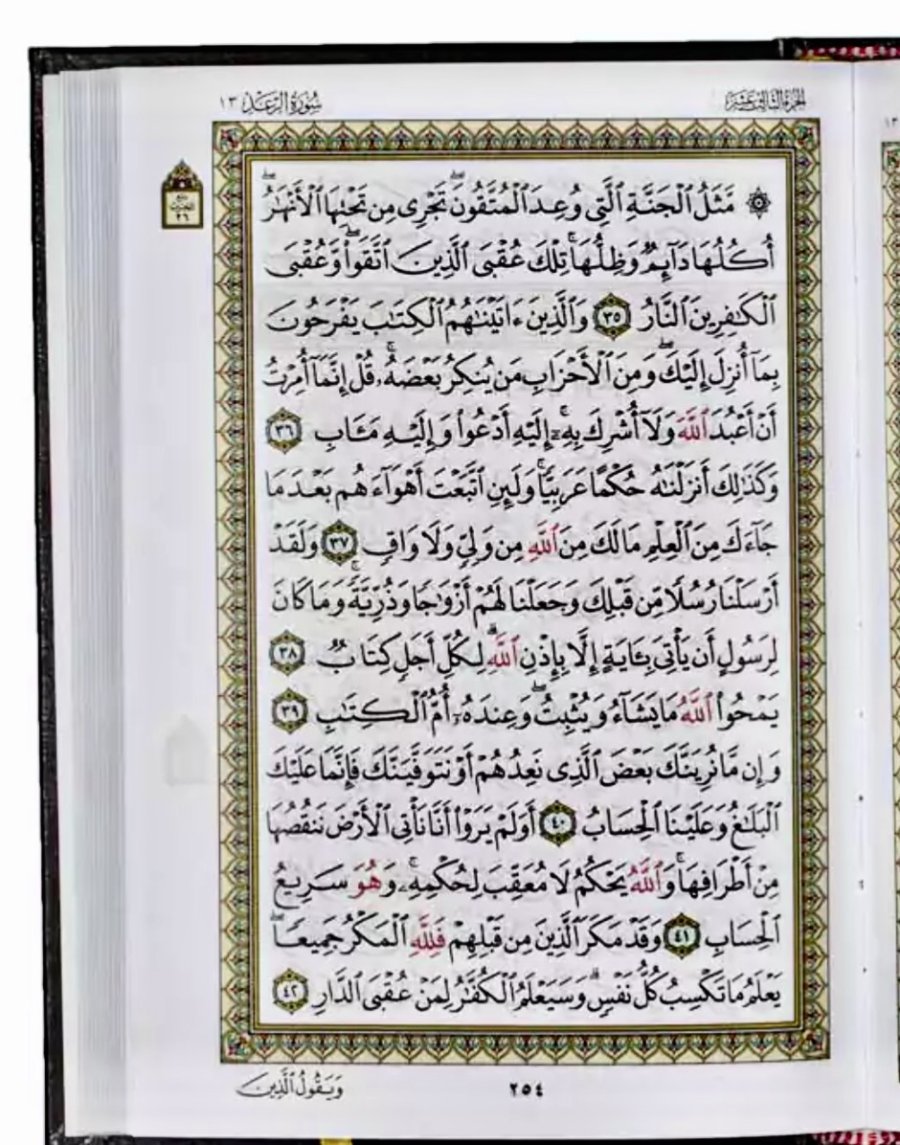 سُورَةُ الرَّعْدِ ١٣
الجُزْءُ الثَّالِثَ عَشَرَ
۞ مَّثَلُ ٱلْجَنَّةِ ٱلَّتِى وُعِدَ ٱلْمُتَّقُونَۖ تَجْرِى مِن تَحْتِهَا ٱلْأَنْهَٰرُۖ
أُكُلُهَا دَآئِمٌ وَظِلُّهَاۚ تِلْكَ عُقْبَى ٱلَّذِينَ ٱتَّقَوا۟ۖ وَّعُقْبَى
ٱلْكَٰفِرِينَ ٱلنَّارُ ٣٥ وَٱلَّذِينَ ءَاتَيْنَٰهُمُ ٱلْكِتَٰبَ يَفْرَحُونَ
بِمَآ أُنزِلَ إِلَيْكَۖ وَمِنَ ٱلْأَحْزَابِ مَن يُنكِرُ بَعْضَهُۥۚ قُلْ إِنَّمَآ أُمِرْتُ
أَنْ أَعْبُدَ ٱللَّهَ وَلَآ أُشْرِكَ بِهِۦٓۚ إِلَيْهِ أَدْعُوا۟ وَإِلَيْهِ مَـَٔابِ ٣٦
وَكَذَٰلِكَ أَنزَلْنَٰهُ حُكْمًا عَرَبِيًّاۚ وَلَئِنِ ٱتَّبَعْتَ أَهْوَآءَهُم بَعْدَمَا
جَآءَكَ مِنَ ٱلْعِلْمِ مَا لَكَ مِنَ ٱللَّهِ مِن وَلِىٍّ وَلَا وَاقٍ ٣٧ وَلَقَدْ
أَرْسَلْنَا رُسُلًا مِّن قَبْلِكَ وَجَعَلْنَا لَهُمْ أَزْوَٰجًا وَذُرِّيَّةًۚ وَمَا كَانَ
لِرَسُولٍ أَن يَأْتِىَ بِـَٔايَةٍ إِلَّا بِإِذْنِ ٱللَّهِۗ لِكُلِّ أَجَلٍ كِتَابٌ ٣٨
يَمْحُوا۟ ٱللَّهُ مَا يَشَآءُ وَيُثْبِتُۖ وَعِندَهُۥٓ أُمُّ ٱلْكِتَٰبِ ٣٩
وَإِن مَّا نُرِيَنَّكَ بَعْضَ ٱلَّذِى نَعِدُهُمْ أَوْ نَتَوَفَّيَنَّكَ فَإِنَّمَا عَلَيْكَ
ٱلْبَلَٰغُ وَعَلَيْنَا ٱلْحِسَابُ ٤٠ أَوَلَمْ يَرَوْا۟ أَنَّا نَأْتِى ٱلْأَرْضَ نَنقُصُهَا
مِنْ أَطْرَافِهَاۚ وَٱللَّهُ يَحْكُمُ لَا مُعَقِّبَ لِحُكْمِهِۦۚ وَهُوَ سَرِيعُ
ٱلْحِسَابِ ٤١ وَقَدْ مَكَرَ ٱلَّذِينَ مِن قَبْلِهِمْ فَلِلَّهِ ٱلْمَكْرُ جَمِيعًاۖ
يَعْلَمُ مَا تَكْسِبُ كُلُّ نَفْسٍۗ وَسَيَعْلَمُ ٱلْكُفَّٰرُ لِمَنْ عُقْبَى ٱلدَّارِ ٤٢
٢٥٤
وَيَقُولُ ٱلَّذِينَ